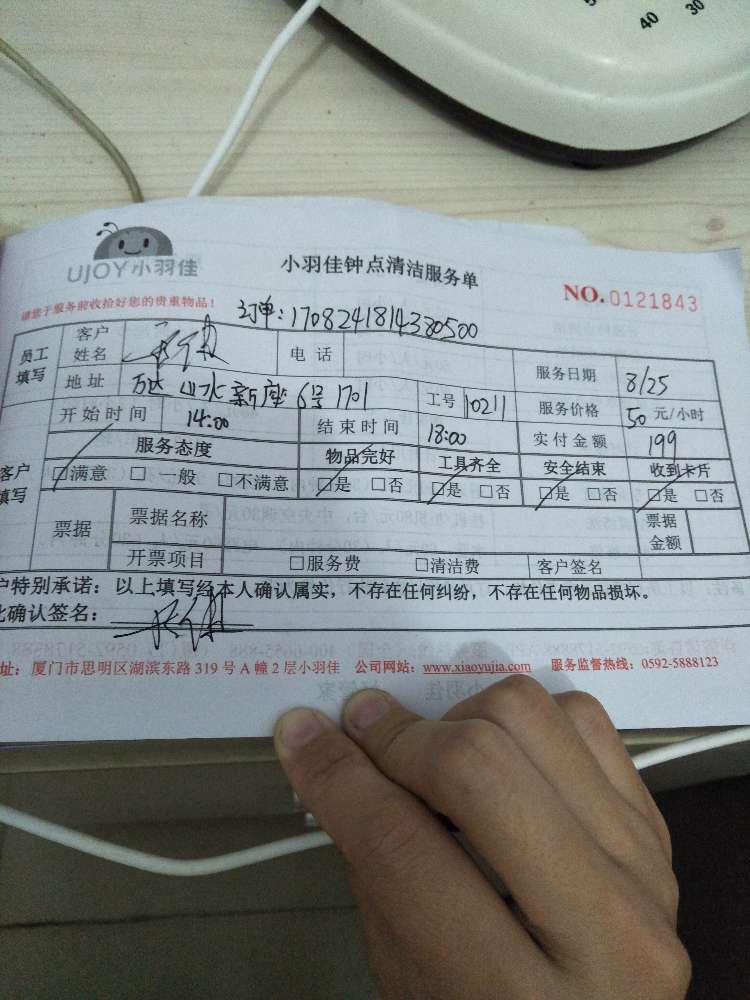 50
40
30
UJOY小羽佳
小羽佳钟点清洁服务单
NO.0121843
请您于服务前收拾好您的贵重物品!
订单:1708241814380500
员工填写
客户姓名
电话
服务日期 8/25
地址 万达山水新座6号1701
工号 10211
服务价格 50元/小时
开始时间 14:00
结束时间 18:00
实付金额 199
客户填写
服务态度 物品完好 工具齐全 安全结束 收到卡片
□满意 □一般 □不满意 □是 □否 □是 □否 □是 □否 □是 □否
票据
票据名称
票据金额
开票项目 □服务费 □清洁费 客户签名
户特别承诺:以上填写经本人确认属实,不存在任何纠纷,不存在任何物品损坏。
此确认签名:
址:厦门市思明区湖滨东路319号A幢2层小羽佳 公司网站:www.xiaoyujia.com 服务监督热线:0592-5888123